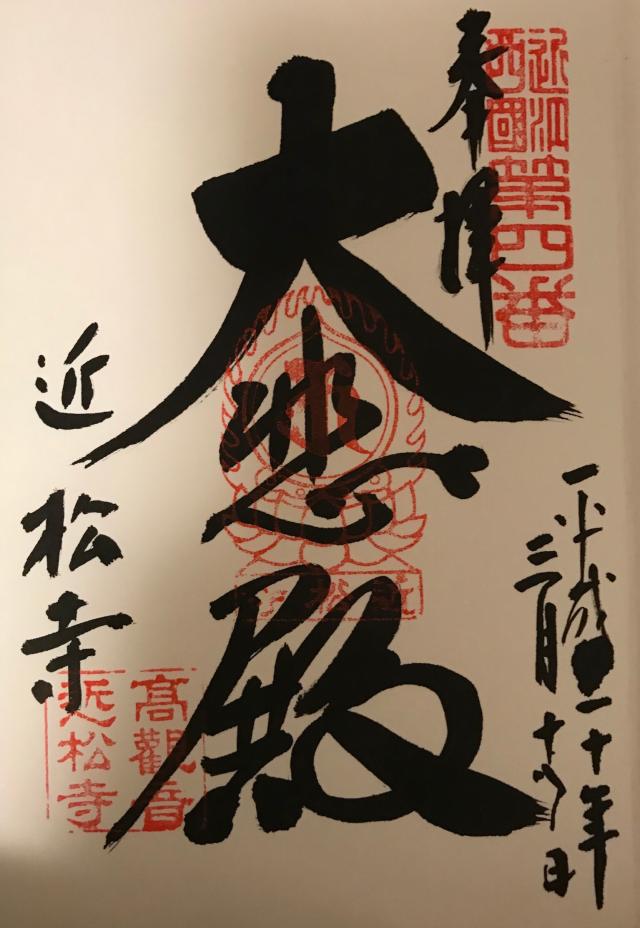 奉拝
近江
西國
第四番
大悲殿
近松寺
平成十年
三月日
近松寺
髙觀音
近松寺